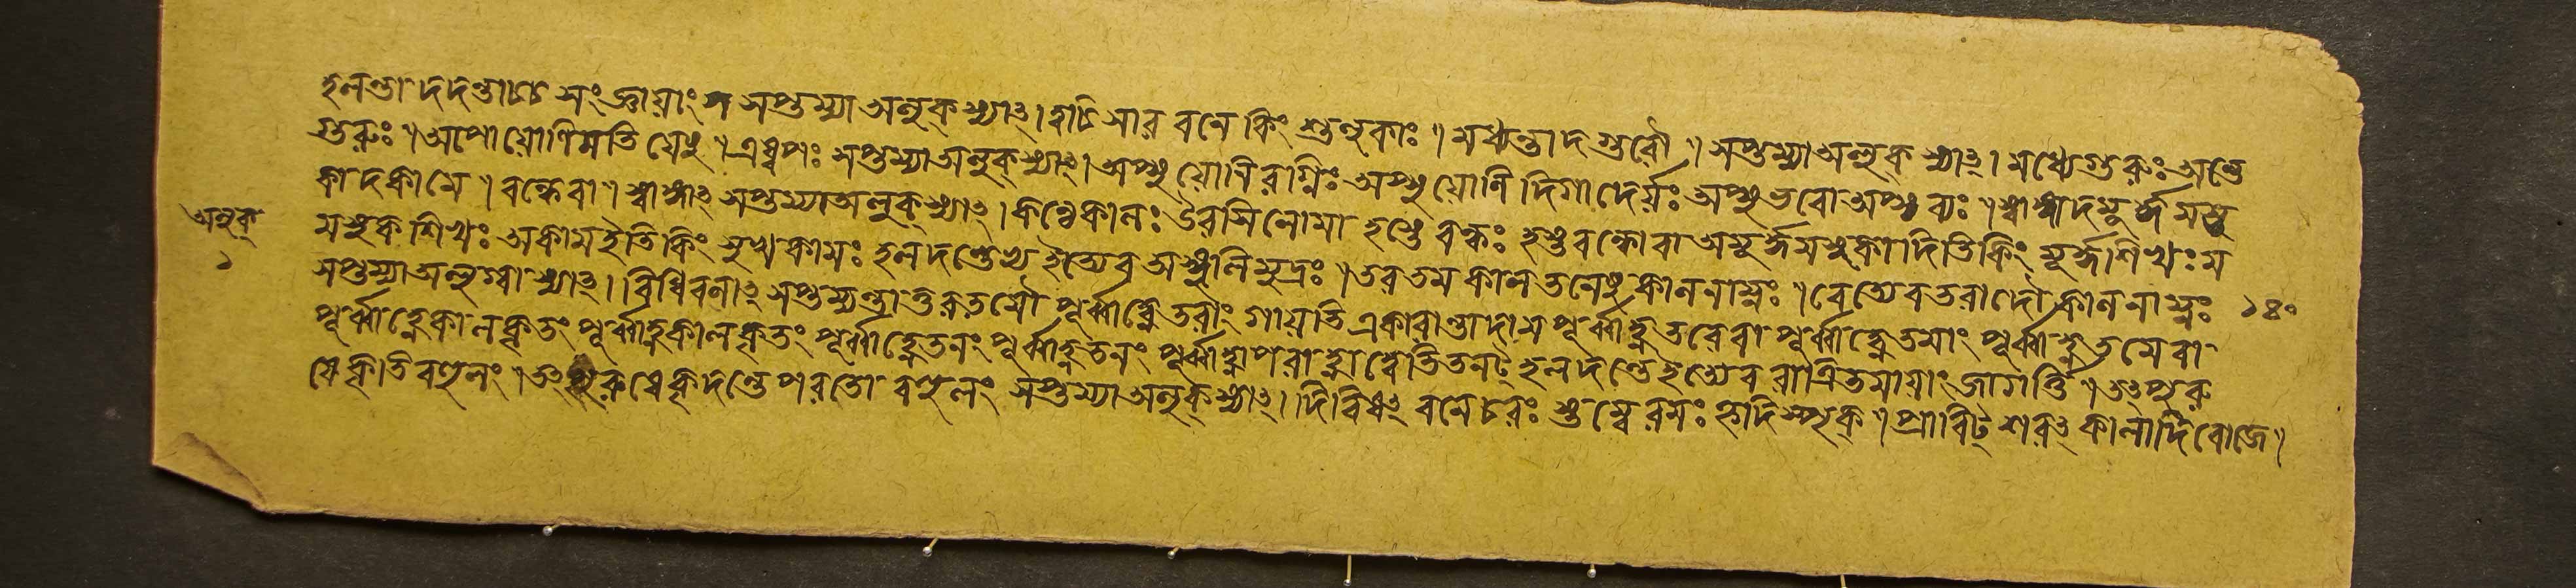 হলন্তাददন্তাচ্চ সংজ্ঞায়াং সপ্তম্যা অলুক্ স্যাৎ। ত্বচিসার বনে কিং শুলুকাঃ। মধ্যন্তাদ গুরৌ। সপ্তম্যা অলুক্ স্যাৎ। মধ্যেগুরুঃ অন্তে
গুরুঃ। অপো যোনিমতি যেষু। এষ্বপঃ সপ্তম্যা অলুক্ স্যাৎ। অপ্সু যোনিরগ্নিঃ অপ্সু যোনি দিগাদের্য়ঃ অপ্সু ভবো অপ্সব্যঃ। স্বাঙ্গাদমূর্দ্ধমস্তু
কাদকামে। বন্ধেবা। স্বাঙ্গাৎ সপ্তম্যা অলুক্ স্যাৎ। কণ্ঠেকালঃ উরসিলোমা হস্তে বন্ধঃ হস্তবন্ধোবা অমূর্দ্ধমস্তকাদিতি কিং মূর্দ্ধশিখঃ ম
অলুক্
১
স্তক শিখঃ অকামইতি কিং মুখকামঃ হলদন্তেত্য ইত্যেব অঙ্গুলিমুদ্রঃ। তরতমকালতনেষু কালনাম্নঃ। বেত্যেব তরাদৌ কালনাম্নঃ
১৪০
সপ্তম্যা অলুগ্বা স্যাৎ। বিধিবলাৎ সপ্তম্যন্তাত্তরতমৌ পূর্ব্বাহ্নেতরাং গায়তি একারান্তাদাম পূর্ব্বাহ্ণতরেবা পূর্ব্বাহ্নেতমাং পূর্ব্বাহ্নতমেবা
পূর্ব্বাহ্নেকালকৃতং পূর্ব্বাহ্নকালকৃতং পূর্ব্বাহ্নেতনং পূর্ব্বাহ্নতনং পূর্ব্বাহ্ণাপরাহ্ণাদ্বেতিতনট্ হলদন্তেইত্যেব রাত্রিতমায়াং জাগর্ত্তি। তৎপুরু
ষেকৃতি বহুলং। তৎপুরুষেকৃদন্তে পরতো বহুলং সপ্তম্যা অলুক্ স্যাৎ। দিবিষৎ বনেচরঃ স্তম্বেরমঃ হৃদিস্পৃক্। প্রাবিট্ শরৎ কালাদিবোজে।